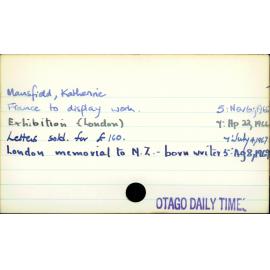 Mansfield, Katherine
France to display work. 5: Nov 6,
Exhibition (London) 7: Ap 22, 1966
Letters sold for £160. July 4, 1967
London memorial to N.Z.-born writer 5: Ag 8, 1969
OTAGO DAILY TIMES